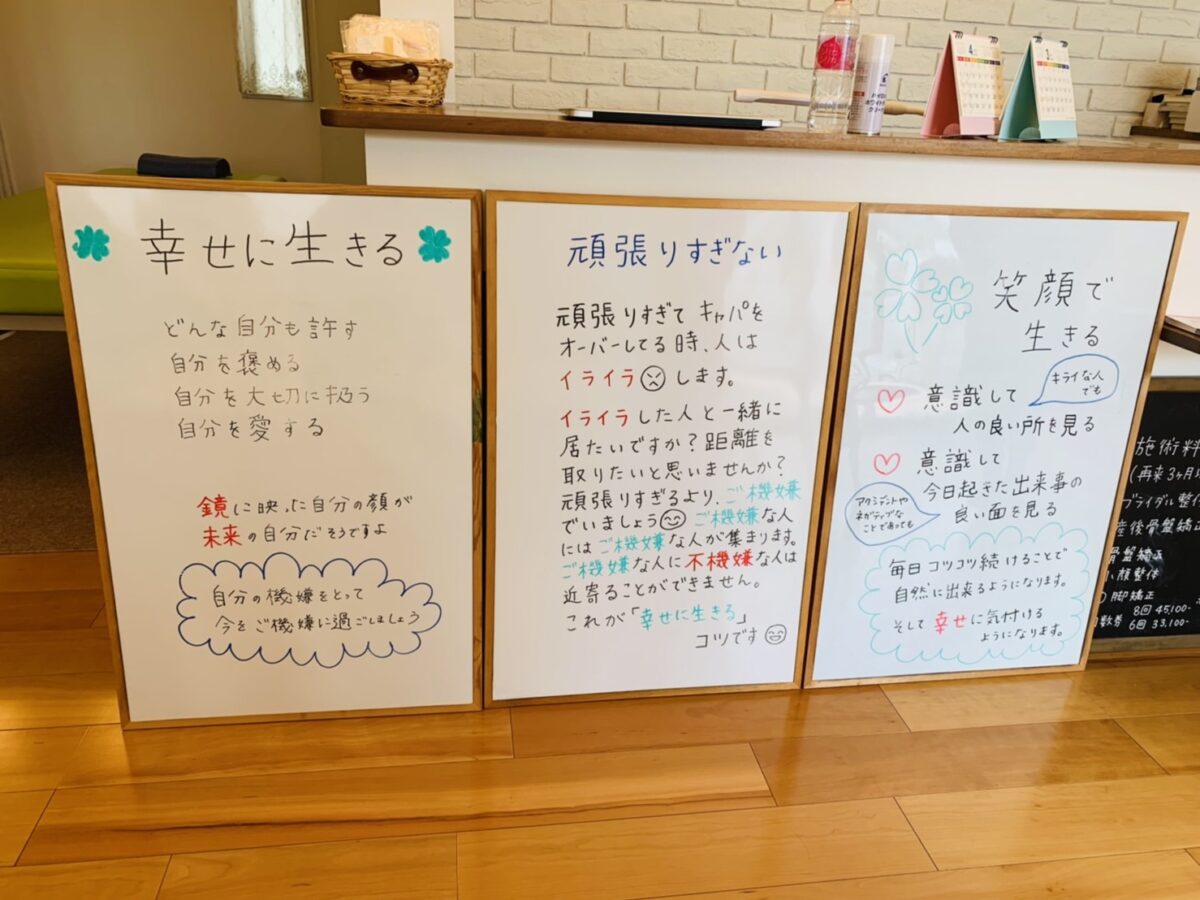 幸せに生きる
どんな自分も許す
自分を褒める
自分を大切に扱う
自分を愛する
鏡に映った自分の顔が
未来の自分だそうですよ
自分の機嫌をとって
今をご機嫌に過ごしましょう
頑張りすぎない
頑張りすぎて キャパを
オーバーしてる時、人は
イライラ します。
イライラした人と一緒に
居たいですか？距離を
取りたいと思いませんか？
頑張りすぎるより、ご機嫌
でいましょう ご機嫌な人
にはご機嫌な人が集まります。
ご機嫌な人に不機嫌な人は
近寄ることができません。
これが「幸せに生きる」
コツです
笑顔で
生きる
キライな人
でも
意識して
人の良い所を見る
意識して
今日起きた出来事の
良い面を見る
アクシデントや
ネガティブな
ことであっても
毎日コツコツ続けることで
自然に出来るようになります。
そして幸せに気付ける
ようになります。
施術料
(再来3ヶ月
ブライダル整体
産後骨盤矯正
骨盤矯正
顔整体
脚矯正
8回 45,100-
数券 6回 33,100-